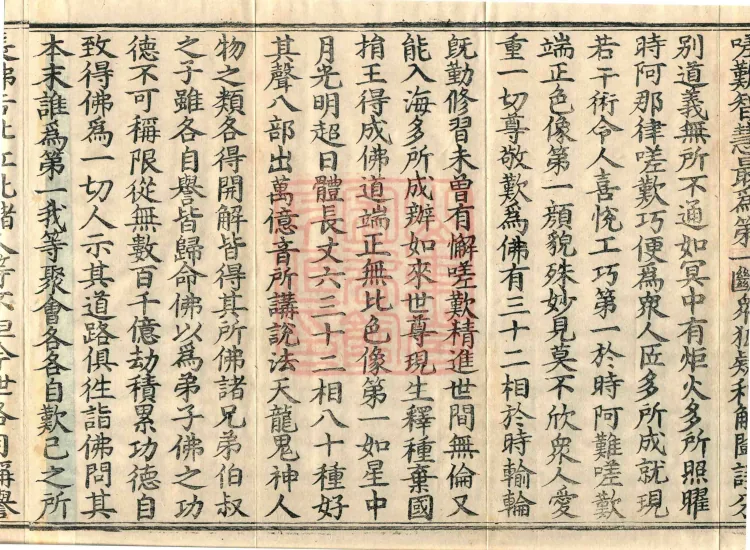 嗟歎智慧最爲第一斷衆狐疑和解
別道義無所不通如冥中有炬火多所照曜
時阿那律嗟歎巧便爲衆人匠多所成就現
若干術令人喜悅工巧第一於時阿難嗟歎
端正色像第一顏貌殊妙見莫不欣衆人愛
重一切尊敬歎爲佛有三十二相於時輸輪
既勤修習未曾有懈嗟歎精進世間無倫又
能入海多所成辦如來世尊現生釋種棄國
捐王得成佛道端正無比色像第一如星中
月光明超日體長丈六三十二相八十種好
其聲八部出萬億音所講說法天龍鬼神人
物之類各得開解皆得其所佛諸兄弟伯叔
之子雖各自譽皆歸命佛以爲弟子佛之功
德不可稱限從無數百千億劫積累功德自
致得佛爲一切人示其道路俱徃詣佛問其
本末誰爲第一我等聚會各各自歎己之所
長佛言比丘此諸人等不但今世各自稱譽